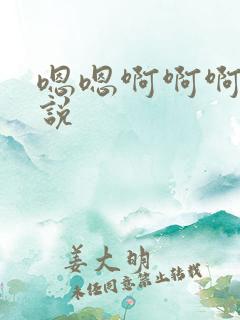 嗯嗯啊啊啊
說
姜大明
未经同意禁止转载